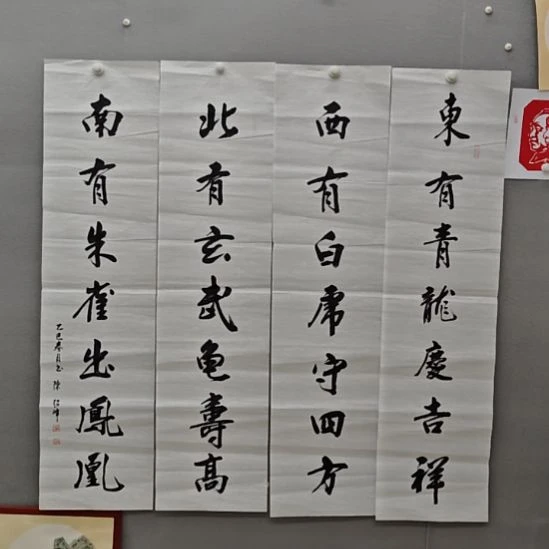 東有青龍慶吉祥
西有白虎守四方
北有玄武龟壽高
南有朱雀出鳳凰
乙巳春月書 陳